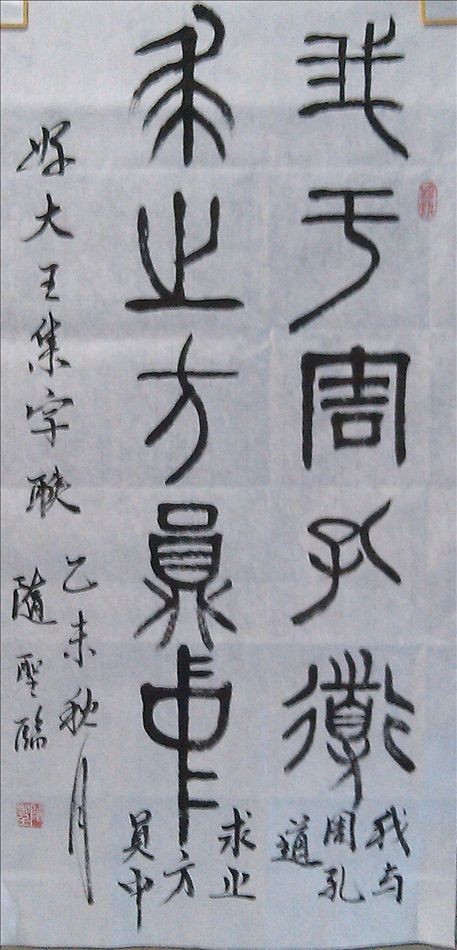 我于周孔道
我与
周孔
道
求止方員中
求止
方
員中
好大王集字联
乙未秋月
隨聖臨